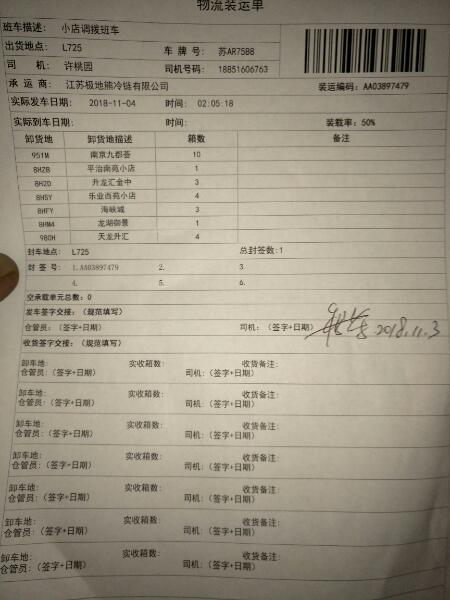 物流装运单
班车描述: 小店调拨班车
出货地点: L725 车 牌 号: 苏AR75B8
司 机: 许桃园 司机号码: 18851606763
承 运 商: 江苏极地熊冷链有限公司 装运编码: AA03897479
实际发车日期: 2018-11-04 时间: 02:05:18
实际到车日期: 时间: 装载率: 50%
卸货地 卸货地描述 箱数 备注
951M 南京九都荟 10
8HZB 平治南苑小店 1
8H2D 升龙汇金中 3
8HSY 乐业西苑小店 4
8HFY 海峡城 3
8HM4 龙湖御景 1
980H 天龙升汇 4
封车地点: L725 总封签数:1
封 签 号: 1.AA03897479 2. 3.
4. 5. 6.
空承载单元总数: 0
发车签字交接: (规范填写)
仓管员: (签字+日期) 司机: (签字+日期) 2018.11.3
收货签字交接: (规范填写)
卸车地: 实收箱数: 收货备注:
仓管员: (签字+日期) 司机: (签字+日期)
卸车地: 实收箱数: 收货备注:
仓管员: (签字+日期) 司机: (签字+日期)
卸车地: 实收箱数: 收货备注:
仓管员: (签字+日期) 司机: (签字+日期)
卸车地: 实收箱数: 收货备注:
仓管员: (签字+日期) 司机: (签字+日期)
卸车地: 实收箱数: 收货备注:
仓管员: (签字+日期) 司机: (签字+日期)
卸车地: 实收箱数: 收货备注:
仓管员: (签字+日期) 司机: (签字+日期)
卸车地: 实收箱数: 收货备注:
仓管员: (签字+日期) 司机: (签字+日期)